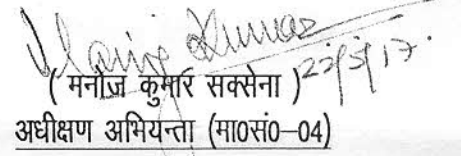 Manoj Kumar
22/5/17.
( मनोज कुमार सक्सेना )
अधीक्षण अभियन्ता (मा0सं0–04)